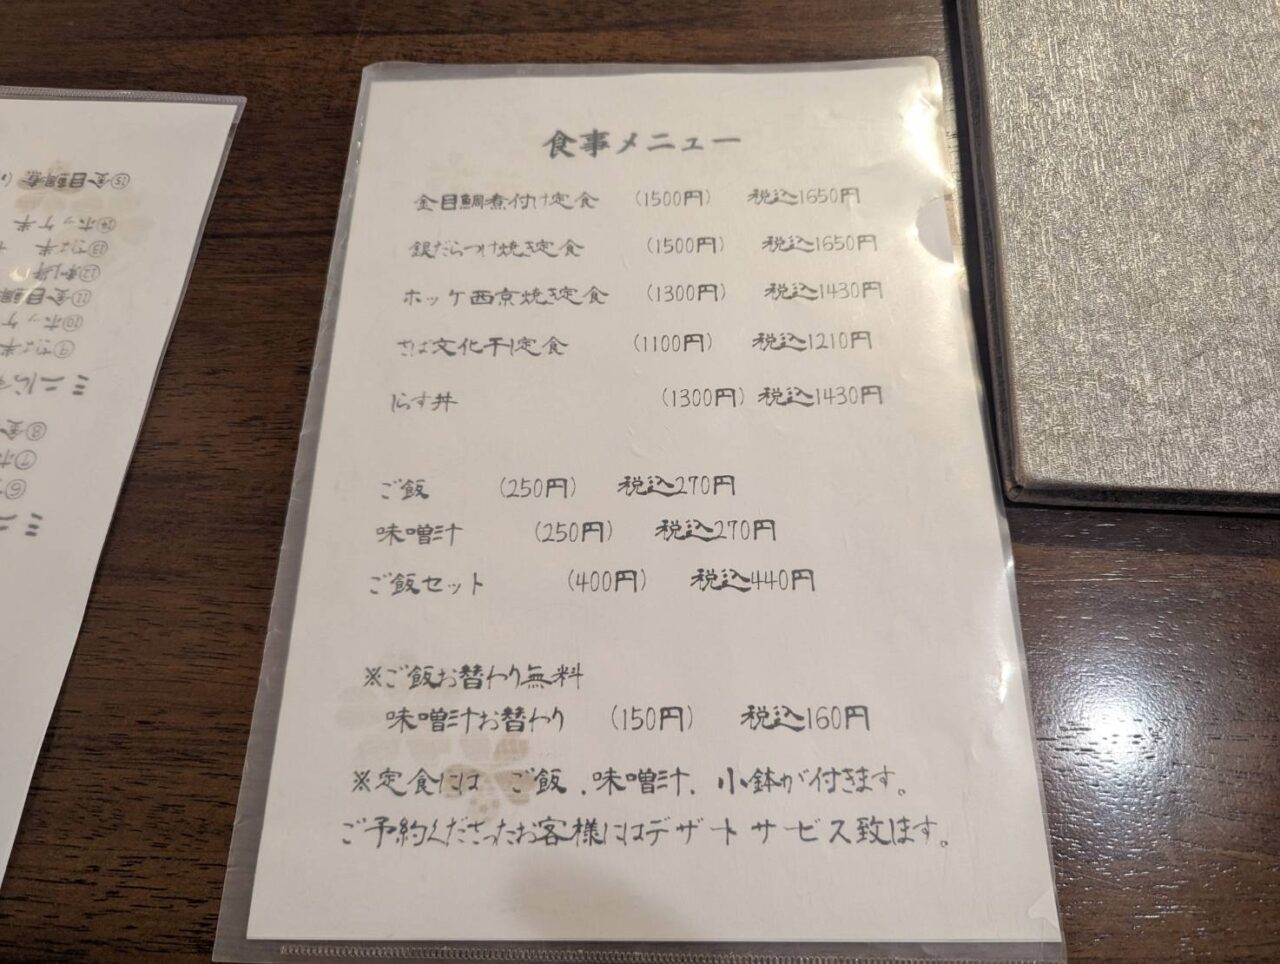 食事メニュー
金目鯛煮付け定食 (1500円) 税込1650円
銀だらつけ焼き定食 (1500円) 税込1650円
ホッケ西京焼き定食 (1300円) 税込1430円
さば文化干し定食 (1100円) 税込1210円
しらす丼 (1300円) 税込1430円
ご飯 (250円) 税込270円
味噌汁 (250円) 税込270円
ご飯セット (400円) 税込440円
※ご飯お替わり無料
味噌汁お替わり (150円) 税込160円
※定食には ご飯、味噌汁、小鉢が付きます。
ご予約くださったお客様にはデザートサービス致ます。
⑮金目鯛煮
⑭ホッケ半
⑬さば半
⑫刺し身
⑪金目鯛
⑩ホッケ
⑨さば半
ミニしらす
⑧金
⑦ホ
⑥
ミニ